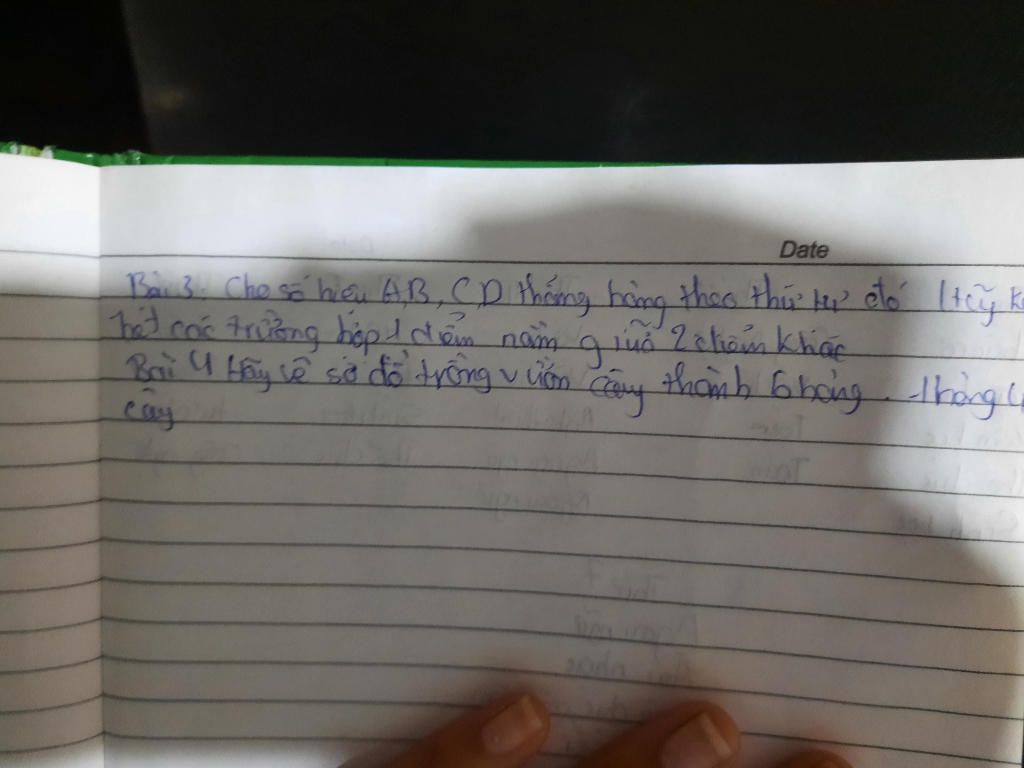 Date
Bài 3: Cho số hiệu A,B, C,D thẳng hàng theo thứ tự đó Hãy k
hết các trường hợp 1 điểm nằm giữa 2 điểm khác
Bài 4 Hãy vẽ sơ đồ trồng vườn cây thành 6 hàng. 1 hàng 4
cây